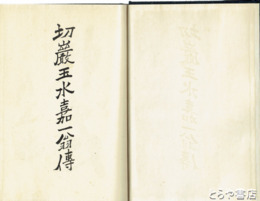 切巖玉水嘉一翁傳
とらや書店